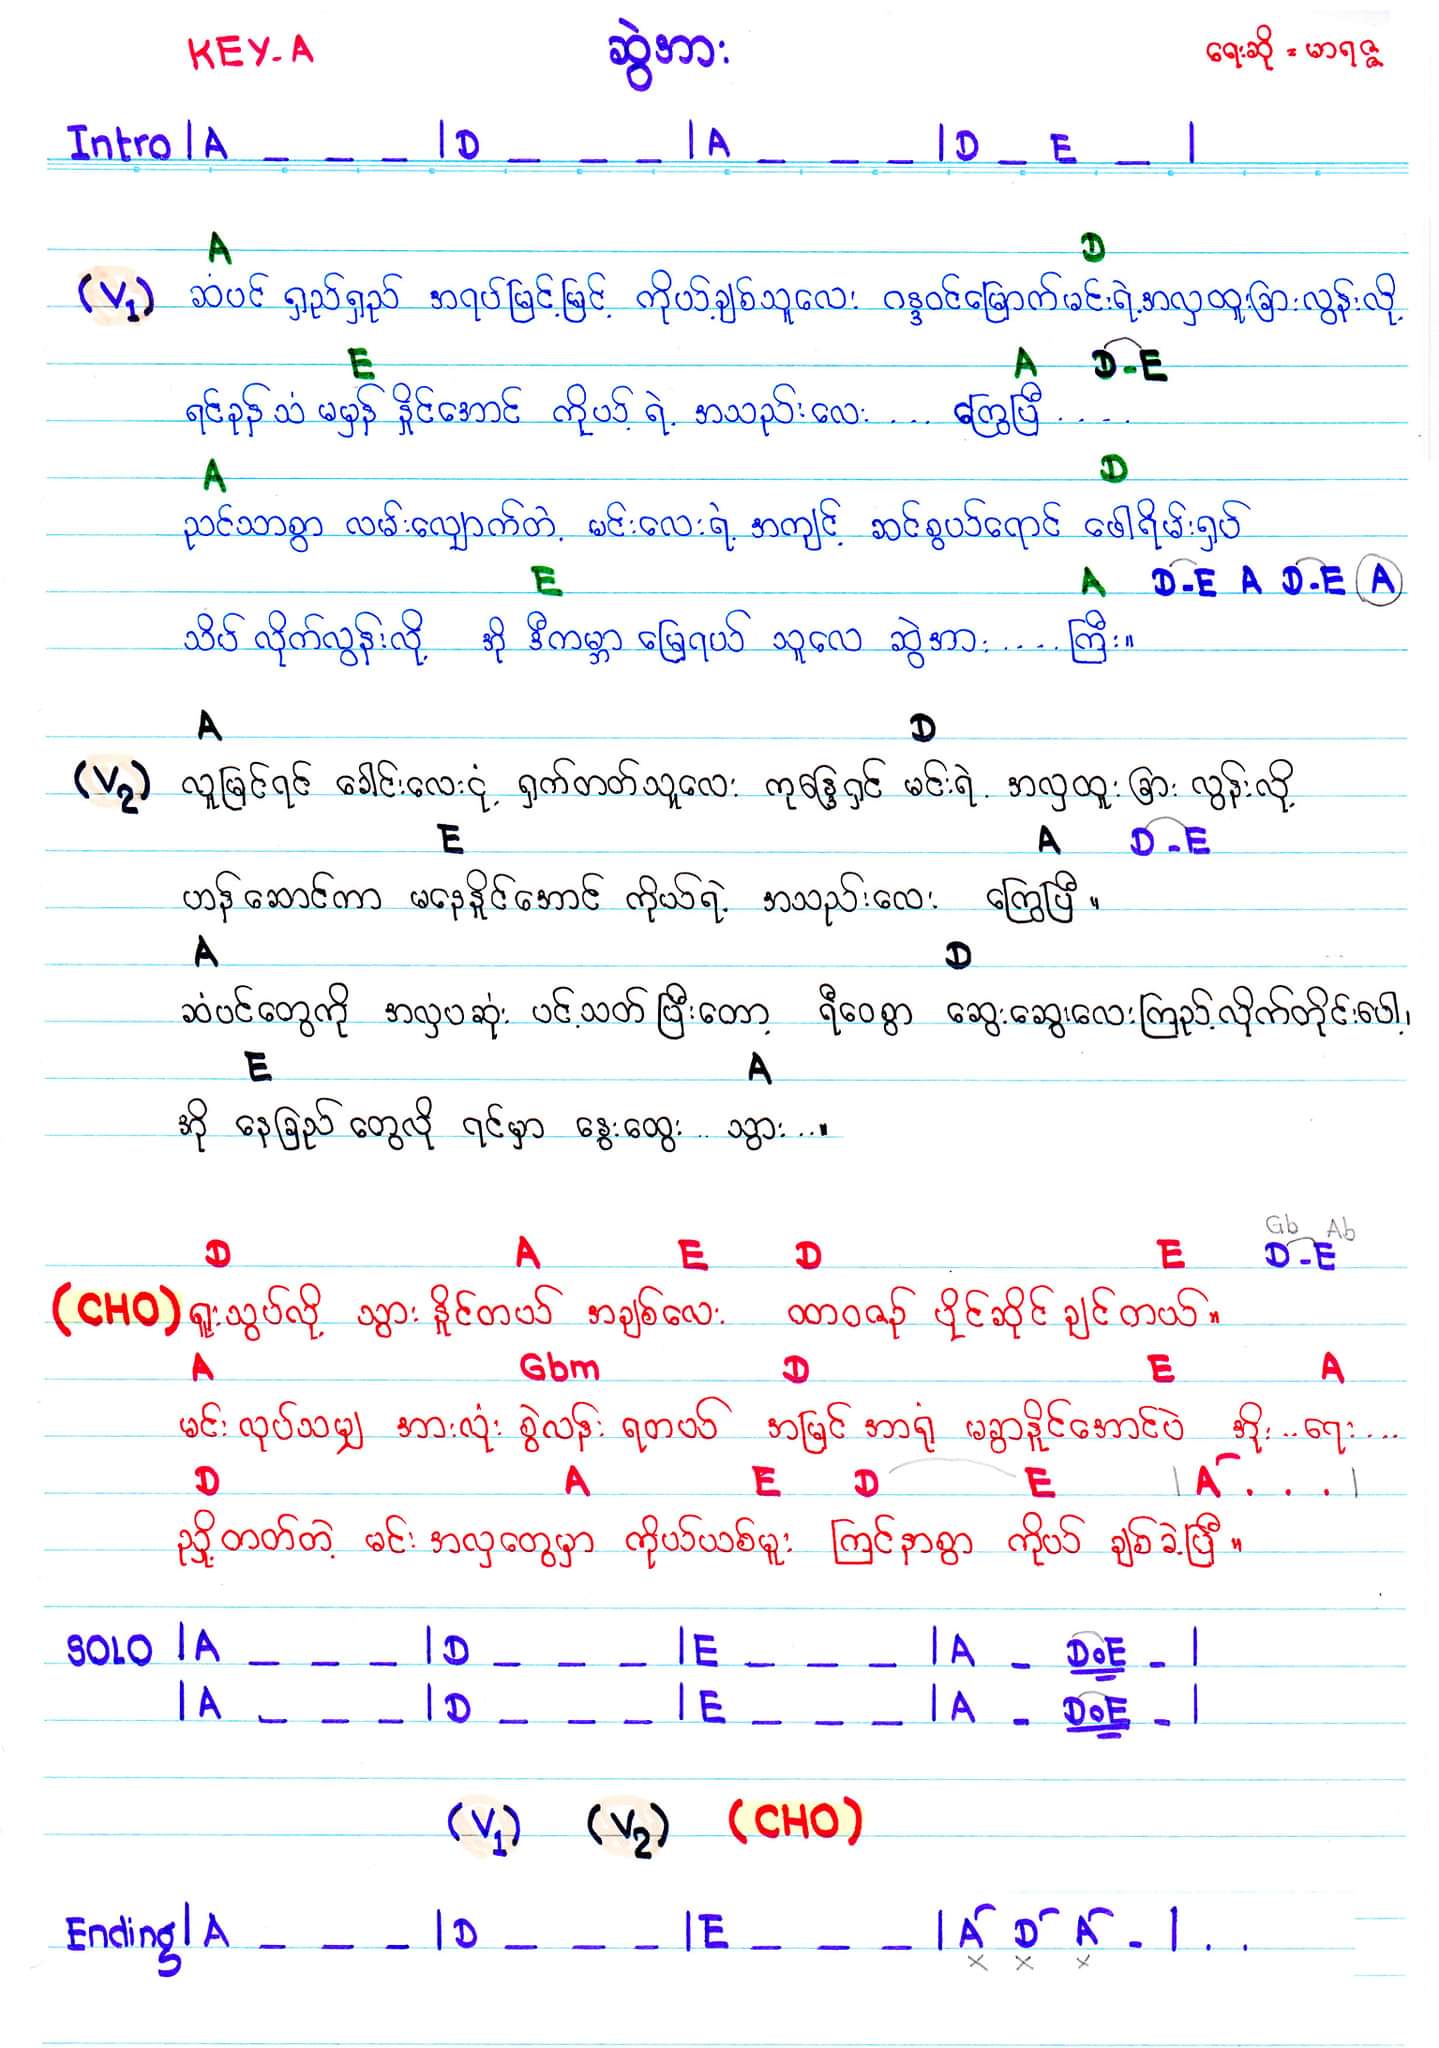 KEY-A ဆွဲအား ရေးဆို = မာရဇ္ဇ
Intro |A _ _ _ |D _ _ _ |A _ _ _ |D _ E _ |
A D
(V1) ဆံပင် ရှည်ရှည် အရပ်မြင့်မြင့် ကိုယ့်ချစ်သူလေး ဂန္ဒဝင်မြောက်မင်းရဲ့အလှထူးခြားလွန်းလို့
E A D-E
ရင်ခုန်သံ မမှန်နိုင်အောင် ကိုယ့်ရဲ့ အသည်းလေး .... ကြွေပြီ ....
A D
ညင်သာစွာ လမ်းလျှောက်တဲ့ မင်းလေးရဲ့ အကျင့် ဆင်စွယ်ရောင် ဖေါ်ရိမ်းရှပ်
E A D-E A D-E A
သိပ်လိုက်လွန်းလို့ အို ဒီကမ္ဘာမြေရယ် သူလေ ဆွဲအား .... ကြီး။
A D
(V2) လူမြင်ရင် ခေါင်းလေးငုံ့ ရှက်တတ်သူလေး ကုန္ဒြေရှင် မင်းရဲ့ အလှထူးခြား လွန်းလို့
E A D-E
ဟန်ဆောင်ကာ မနေနိုင်အောင် ကိုယ်ရဲ့ အသည်းလေး ကြွေပြီ။
A D
ဆံပင်တွေကို အလှပဆုံး ပင့်သတ်ပြီးတော့ ရီဝေစွာ ဆွေးဆွေးလေးကြည့်လိုက်တိုင်းပေါ့၊
E A
အို နေခြည်တွေလို ရင်မှာ နွေးထွေး .. သွား ...။
Gb Ab
D A E D E D-E
(CHO) ရူးသွပ်လို့ သွားနိုင်တယ် အချစ်လေး ထာဝဇဉ် ပိုင်ဆိုင်ချင်တယ်။
A Gbm D E A
မင်းလုပ်သမျှ အားလုံး စွဲလန်းရတယ် အမြင်အာရုံ မခွာနိုင်အောင်ပဲ အိုး .. ရေး ...
D A E D E |A . . . |
ညှို့တတ်တဲ့ မင်းအလှတွေမှာ ကိုယ်ယစ်မူး ကြင်နာစွာ ကိုယ် ချစ်ခဲ့ပြီ။
SOLO |A _ _ _ |D _ _ _ |E _ _ _ |A _ D.E _ |
|A _ _ _ |D _ _ _ |E _ _ _ |A _ D.E _ |
(V1) (V2) (CHO)
Ending |A _ _ _ |D _ _ _ |E _ _ _ |A D A _ | . .
x x x